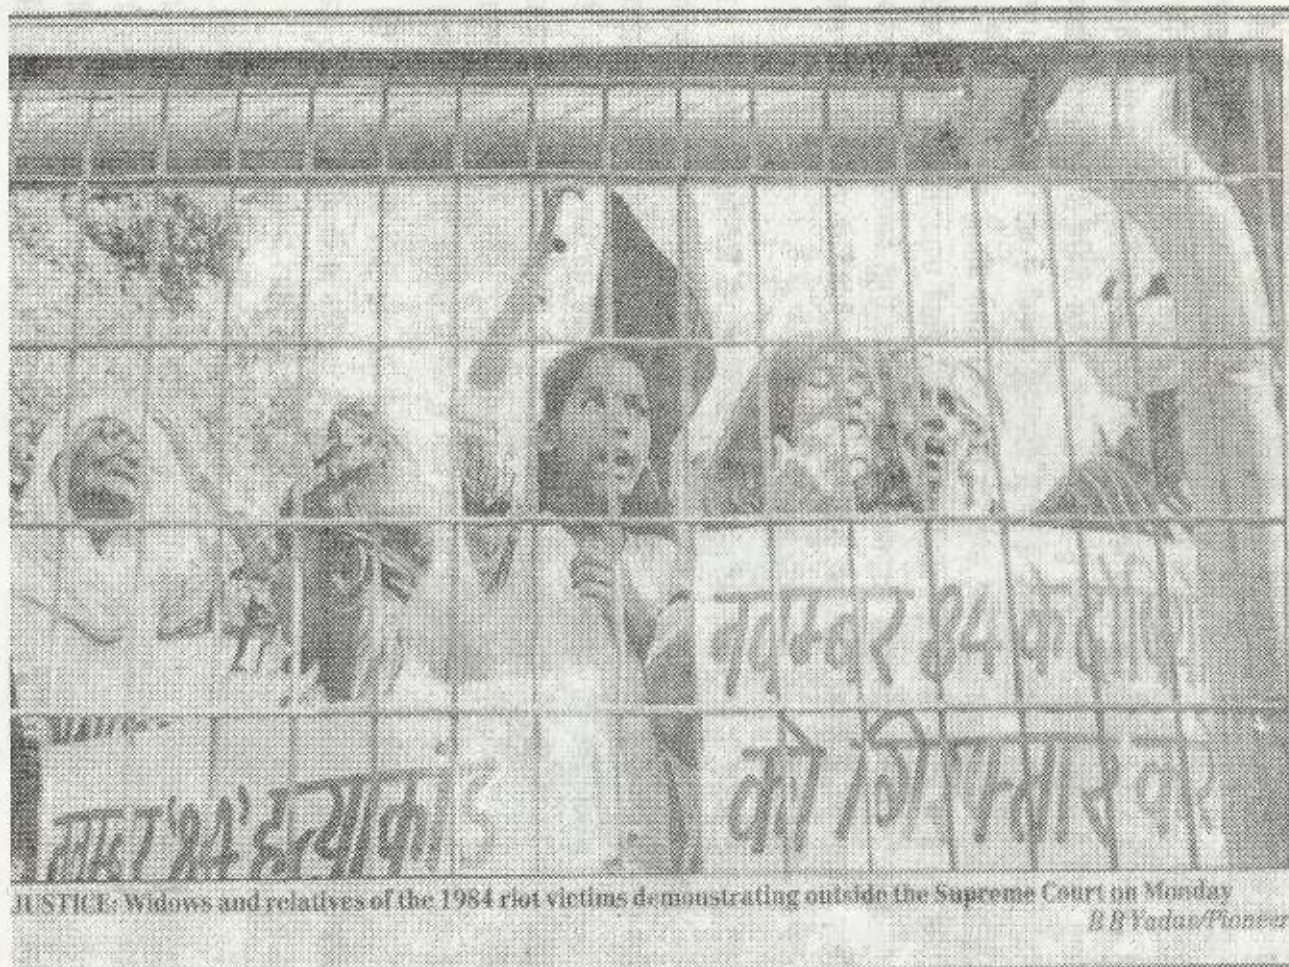 नवम्बर 84 के दोषि
को गिरफ्तार कर
'84' हत्याकांड
JUSTICE: Widows and relatives of the 1984 riot victims demonstrating outside the Supreme Court on Monday
B B Yadav/Pioneer